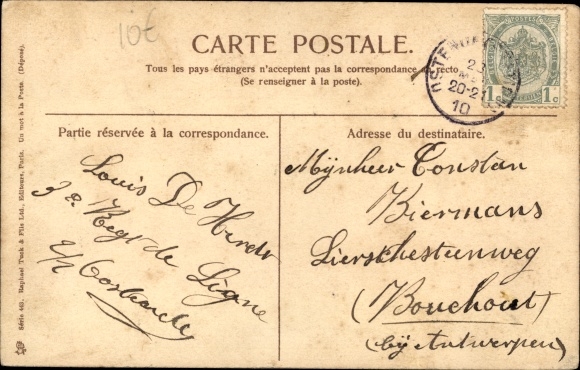 10€
CARTE POSTALE.
Tous les pays étrangers n'acceptent pas la correspondance au recto
(Se renseigner à la poste).
Partie réservée à la correspondance.
Louis De
3e Regt de Ligne
Adresse du destinataire.
Mijnheer Constan
Biermans
Lierschesteenweg
(Bouchout)
(bij Antwerpen)
POSTES
1c 1c
23
20-21
10
Série 443. Raphael Tuck & Fils Ltd., Editeurs, Paris. Un mot à la Poste. (Déposé).